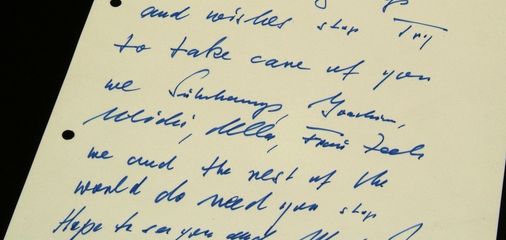 and wishes stop Try
to take care of you
we Suhrkamp, Joachim,
Wladi, Della, Frau Zech
we and the rest of the
world do need you stop
Hope to see you and